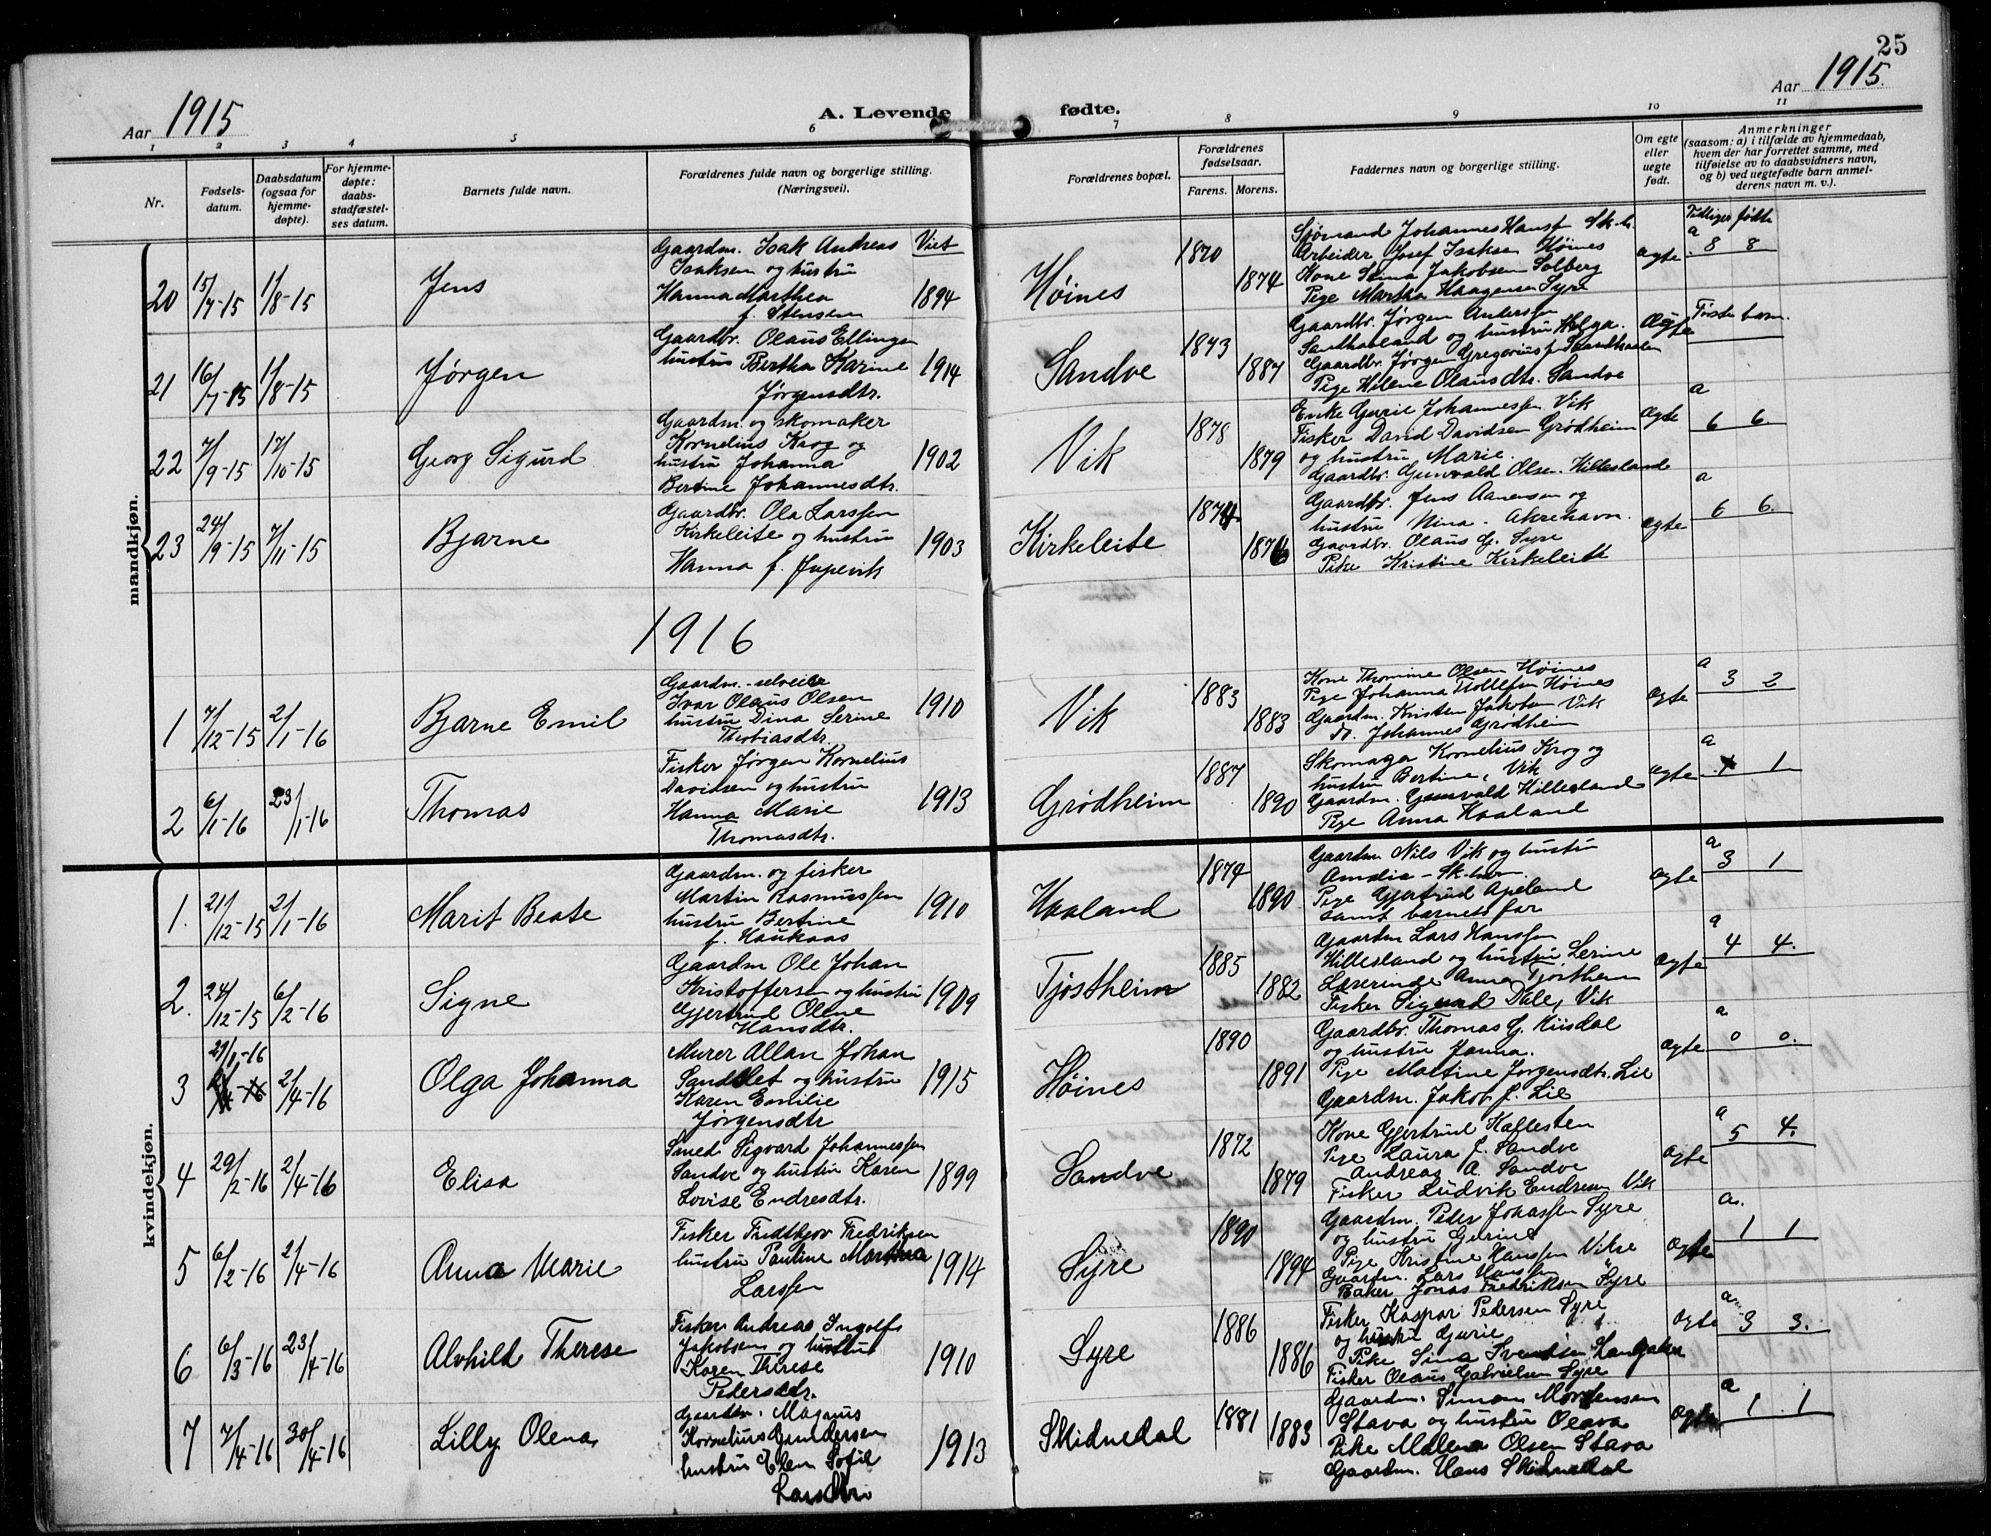 25
Aar 1915
A. Levende fødte.
Aar 1915.
1 2 3 4 5 6 7 8 9 10 11
Nr.
Fødsels-
datum.
Daabsdatum
(ogsaa for
hjemme-
døpte).
For hjemme-
døpte:
daabs-
stadfæstel-
ses datum.
Barnets fulde navn.
Forældrenes fulde navn og borgerlige stilling.
(Næringsvei).
Forældrenes bopæl.
Forældrenes
fødselsaar.
Farens. Morens.
Faddernes navn og borgerlige stilling.
Om egte
eller
uegte
født.
Anmerkninger
(saasom: a) i tilfælde av hjemmedaab,
hvem der har forrettet samme, med
tilføielse av to daabsvidners navn,
og b) ved uegtefødte barn anmel-
derens navn m. v.).
mandkjøn.
20 15/7-15 1/8-15 Jens
Gaardm. Isak Andreas
Isaksen og hustru
Hanna Marthea
f. Stensen
Viet
1894
Høines
1870
1874
Sjømand Johannes Hansf. Sk.h.
Arbeider Josef Isaksen Høines
Kone Sina Jakobsen Solberg
Pige Martha Haagensen Syre
ægte
Tidliger fødte
a
8 8
21 16/7-15 1/8-15 Jørgen
Gaardbr. Olaus Ellingsen
hustru Bertha Karine
Jørgensdtr.
1914
Sandve
1873
1887
Gaardbr. Jørgen Anderssen
Sandhaaland og hustru Helga.
Gaardbr. Jørgen Gregoriusf. Sandhaalen
Pige Helene Olausdtr. Sandve
Ægte
Første barn.
22 7/9-15 17/10-15 Georg Sigurd
Gaardm. og skomaker
Kornelius Krog og
hustru Johanna
Bertine Johannesdtr.
1902
Vik
1878
1879
Enke Gurie Johannessen, Vik
Fisker David Davidsen Grødheim
og hustru Marie.
Gaardbr. Gunvald Olsen Hillesland
ægte
a
6 6.
23 24/9-15 7/11-15 Bjarne
Gaardbr. Ola Larssen
Kirkeleite og hustru
Hanna f. Jupevik
1903
Kirkeleite
1874
1876
Gaardbr. Jens Aanensen og
hustru Nina - Akrehavn.
Gaardbr. Olaus G. Syre
Pike Kristine Kirkeleite
ægte
a
6 6.
1916
1 7/12-15 2/1-16 Bjarne Emil
Gaardm.-selveier
Ivar Olaus Olsen
hustru Dina Serine
Thobiasdtr.
1910
Vik
1883
1883
Kone Thomine Olsen Høines
Pige Johanna Tollefsen Høines
Gaardm. Kristen Jakobsen Vik
do. Johannes Grødheim
ægte
a
3 2
2 6/1-16 23/1-16 Thomas
Fisker Jørgen Kornelius
Davidsen og hustru
Hanna Marie
Thomasdtr.
1913
Grødheim
1887
1890
Skomager Kornelius Krog og
hustru Bertine, Vik
Gaardm. Gunvald Hillesland
Pige Anna Haaland
ægte
a
1 1
kvindekjøn.
1. 21/12-15 2/1-16 Marit Beate
Gaardm. og fisker
Martin Rasmussen
hustru Bertine
f. Haukaas
1910
Haaland
1874
1890
Gaardm Nils Vik og hustru
Amalie - Sk.havn.
Pige Gjertrud Apeland
samt barnets far
ægte
a
3 1
2. 24/12-15 6/2-16 Signe
Gaardm Ole Johan
Kristoffersen og hustru
Gjertrud Oline
Hansdtr.
1909
Tjøstheim
1885
1882
Gaardm Lars Hanssen
Hillesland og hustru Serine
Lærerinde Anna Tjøstheim
Fisker Sigurd Dale, Vik
ægte
a
4 4.
3 29/1-16 2/4-16 Olga Johanna
Murer Allan Johan
Sandslet og hustru
Karen Emilie
Jørgensdtr
1915
Høines
1890
1891
Gaardbr. Thomas G. Kiisdal
og hustru Janna.
Pige Martine Jørgensdtr. Lie
Gaardm. Jakob J. Lie
ægte
a
0 0.
4 29/2-16 2/4-16 Elisa
Smed Sigvard Johannessen
Sandve og hustru Karen
Lovise Endresdtr.
1899
Sandve
1872
1879
Kone Gjertrud Kallesten
Pige Laura J. Sandve
Andreas A. Sandve
Fisker Ludvik Endresen Vik
ægte
a
5 4.
5 6/2-16 2/4-16 Anna Marie
Fisker Fridtjov Fredriksen
hustru Pauline Marthea
Larssen
1914
Syre
1890
1894
Gaardm. Peder Johassen Syre
og hustru Gurine
Pige Kristine Hanssen Vikse
Gaardm. Lars Hanssen "
Baker Jonas Fredriksen Syre
ægte
a.
1 1
6 6/3-16 23/4-16 Alvhild Therese
Fisker Andreas Ingolf
Jakobsen og hustru
Karen Therese
Pedersdtr.
1910
Syre
1886
1886
Fisker Kaspar Pedersen Syre
og hustru Gurie
Pike Sina Svendsen Langaker
Fisker Olaus Gabrielsen Syre
ægte
a
3 3.
7 7/4-16 30/4-16 Lilly Olena
Gaardbr. Magnus
Kornelius Gundersen
hustru Elen Sofie
Larsdtr
1913
Skidnedal
1881 1883
Gaardm. Simon Mortensen
Stava og hustru Olava
Pike Malena Olsen Stava
Gaardm. Hans Skidnedal
ægte
a
1 1